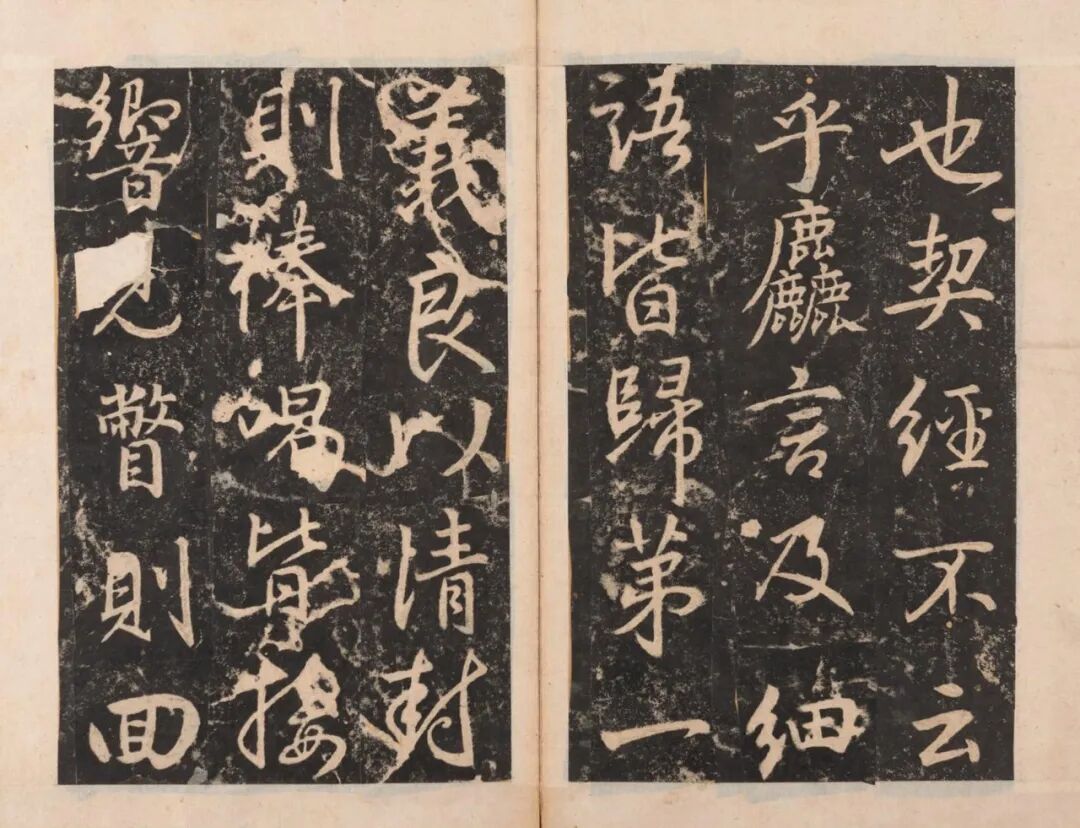 也契經不云
乎麤言及細
語皆歸第一
義良以情封
則棒喝皆接
響見瞥則回